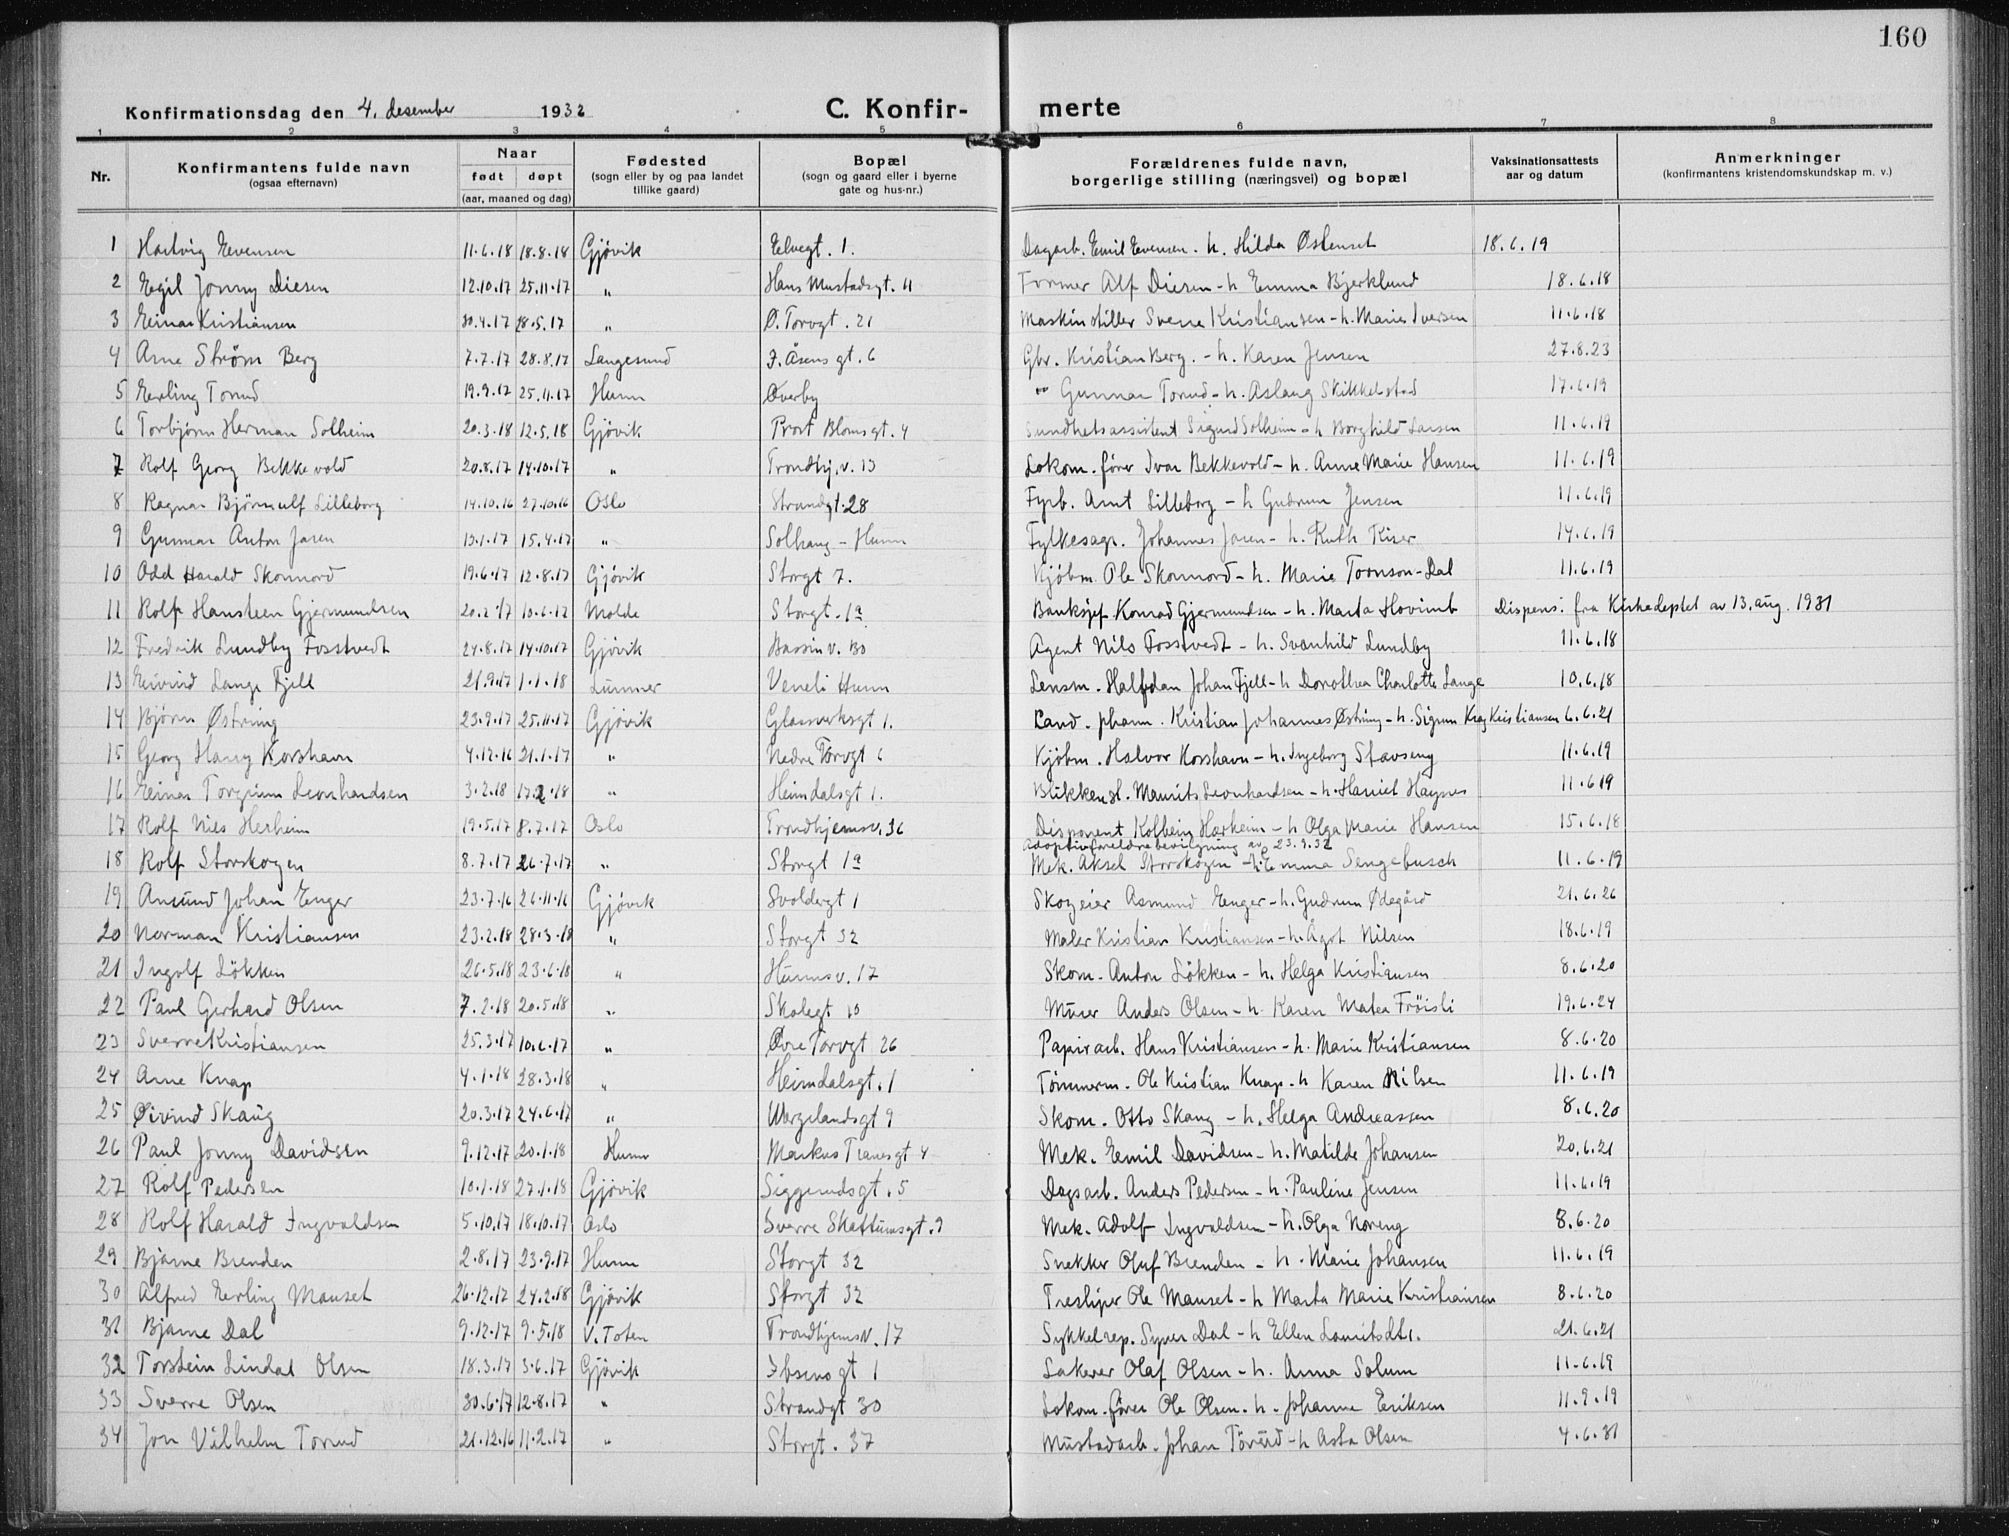 160
Konfirmationsdag den 4. desember 1932 C. Konfir- merte
1 2 3 4 5 6 7 8
Nr. Konfirmantens fulde navn (ogsaa efternavn) Naar født døpt (aar, maaned og dag) Fødested (sogn eller by og paa landet tillike gaard) Bopæl (sogn og gaard eller i byerne gate og hus-nr.) Forældrenes fulde navn, borgerlige stilling (næringsvei) og bopæl Vaksinationsattests aar og datum Anmerkninger (konfirmantens kristendomskundskap m. v.)
1 Hartvig Evensen 11.6.18 18.8.18 Gjøvik Elvegt. 1. Dagarb. Emil Evensen. h. Hilda Østenset 18.6.19
2 Egil Jonny Diesen 12.10.17 25.11.17 " Hans Mustadsgt. 11 Former Alf Diesen - h Emma Bjerklund 18.6.18
3 Einar Kristiansen 30.4.17 28.5.17 " Ø. Torvgt. 21 Maskinstiller Sverre Kristiansen - h. Marie Iversen 11.6.18
4 Arne Strøm Berg 7.7.17 28.8.17 Langesund I. Åsens gt. 6 Gbr. Kristian Berg. - h. Karen Jensen 27.8.23
5 Erling Torud 19.9.17 25.11.17 Hunn Øverby " Gunnar Torud - h. Aslaug Skikkelstad 17.6.19
6 Torbjørn Herman Solheim 20.3.18 12.5.18 Gjøvik Prost Bloms gt. 4 Sundhetsassistent Sigurd Solheim - h Borghild Larsen 11.6.19
7 Rolf Georg Bekkevold 20.8.17 14.10.17 " Trondhj. v. 13 Lokom. fører Ivar Bekkevold - h. Anne Marie Hansen 11.6.19
8 Ragnar Bjørnulf Lilleborg 14.10.16 27.10.16 Oslo Strandgt. 28 Fyrb. Arnt Lilleborg - h Gudrun Jensen 11.6.19
9 Gunnar Anton Jaren 13.1.17 15.4.17 " Solhaug - Hunn Fylkesagr. Johannes Jaren - h. Ruth Kiser 14.6.19
10 Odd Harald Skonnord 19.6.17 12.8.17 Gjøvik Storgt 7. Kjøbm. Ole Skonnord - h. Marie Tornson-Dal 11.6.19
11 Rolf Hansteen Gjermundsen 20.2.17 10.6.17 Molde Storgt. 1a Banksjef Konrad Gjermundsen - h. Marta Hovind Dispens: fra Kirkedeptet av 13. aug. 1931
12 Fredrik Lundby Fosstvedt 24.8.17 14.10.17 Gjøvik Bassin v. 30 Agent Nils Fosstvedt - h. Svanhild Lundby 11.6.18
13 Eivind Lange Fjell 21.9.17 1.1.18 Lunner Veneli Hunn Lensm. Halfdan Johan Fjell - h Dorothea Charlotte Lange 10.6.18
14 Bjørn Østring 23.9.17 25.11.17 Gjøvik Glassverksgt 1. Cand. pharm. Kristian Johannes Østring - h. Sigrun Krag Kristiansen 6.6.21
15 Georg Harry Korshavn 4.12.16 21.1.17 " Nedre Torvgt 6 Kjøbm. Halvor Korshavn - h. Ingeborg Stavseng 11.6.19
16 Einar Torgrim Leonhardsen 3.2.18 17.2.18 " Heimdalsgt 1. Blikkensl. Maurits Leonhardsen - h. Harriet Haynes 11.6.19
17 Rolf Nils Herheim 19.5.17 8.7.17 Oslo Trondhjemsv. 36 Disponent Kolbein Herheim - h Olga Marie Hansen 15.6.18
18 Rolf Storskogen 8.7.17 26.7.17 " Storgt 1a adoptivforeldre bevilgning av 23.9.32 Mek. Aksel Storskogen - h. Emma Sengebusch 11.6.19
19 Amund Johan Enger 23.7.16 26.11.16 Gjøvik Svoldergt 1 Skogeier Asmund Enger - h. Gudrun Ødegård 21.6.26
20 Norman Kristiansen 23.2.18 28.3.18 " Storgt 32 Maler Kristian Kristiansen - h. Ågot Nilsen 18.6.19
21 Ingolf Løkken 26.5.18 23.6.18 " Hunnsv. 17 Skom. Anton Løkken - h. Helga Kristiansen 8.6.20
22 Paul Gerhard Olsen 7.2.18 20.5.18 " Skolegt 10 Murer Anders Olsen - h. Karen Matea Frøisli 19.6.24
23 Sverre Kristiansen 25.3.17 10.6.17 " Øvre Torvgt 26 Papirarb. Hans Kristiansen - h. Marie Kristiansen 8.6.20
24 Arne Knap 4.1.18 28.3.18 " Heimdalsgt. 1 Tømmerm. Ole Kristian Knap - h Karen Nilsen 11.6.19
25 Øivind Skaug 20.3.17 24.6.17 " Wergelandsgt 9 Skom. Otto Skaug - h. Helga Andreassen 8.6.20
26 Paul Jonny Davidsen 9.12.17 20.1.18 Hunn Markus Tranesgt 4 Mek. Emil Davidsen - h. Matilde Johansen 20.6.21
27 Rolf Pedersen 10.1.18 27.1.18 Gjøvik Siggerudsgt. 5 Dagsarb. Anders Pedersen - h. Pauline Jensen 11.6.19
28 Rolf Harald Ingvaldsen 5.10.17 18.10.17 Oslo Sverre Skattumsgt. 9 Mek. Adolf Ingvaldsen - h. Olga Noreng 8.6.20
29 Bjarne Brenden 2.8.17 23.9.17 Hunn Storgt 32 Snekker Oluf Brenden - h. Marie Johansen 11.6.19
30 Alfred Erling Manset 26.12.17 24.2.18 Gjøvik Storgt 32 Tresliper Ole Manset - h Marta Marie Kristiansen 8.6.20
31 Bjarne Dal 9.12.17 9.5.18 V. Toten Trondhjemsv. 17 Sykkelrep. Syver Dal - h Ellen Lauritsdtr. 21.6.21
32 Torstein Lindal Olsen 18.3.17 3.6.17 Gjøvik Ibsens gt 1 Lakerer Olaf Olsen - h. Anna Solum 11.6.19
33 Sverre Olsen 30.6.17 12.8.17 " Strandgt 30 Lokom. fører Ole Olsen. h. Johanne Eriksen 11.9.19
34 Jon Vilhelm Torud 21.12.16 11.2.17 " Storgt. 37 Mustadarb. Johan Torud - h Asta Olsen 4.6.31